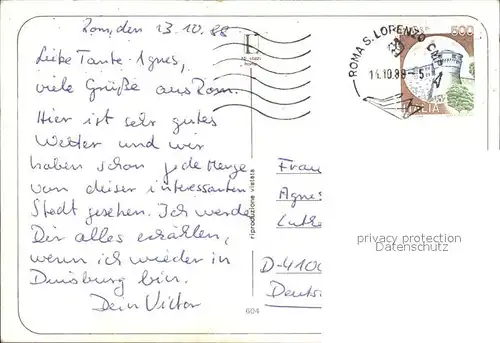 Rom, den 13.10.88
Liebe Tante Agnes,
viele Grüße aus Rom.
Hier ist sehr gutes
Wetter und wir
haben schon jede Menge
von dieser interessanten
Stadt gesehen. Ich werde
Dir alles erzählen,
wenn ich wieder in
Duisburg bin.
Dein Victor
riproduzione vietata
604
ROMA S. LORENZO
14.10.88-5
500
Frau
Agnes
Luthe
D-4100
Deuts
privacy protection
Datenschutz